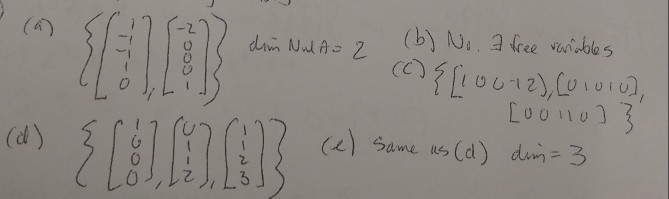 (a) { [1 -1 -1 1 0], [-2 0 0 0 1] } dim Nul A = 2 (b) No. ∃ free variables
(c) { [1 0 0 -1 2), [0 1 0 1 0],
[0 0 1 1 0] }
(d) { [1 0 0 0], [0 1 1 2], [1 1 2 3] } (e) Same as (d) dim = 3